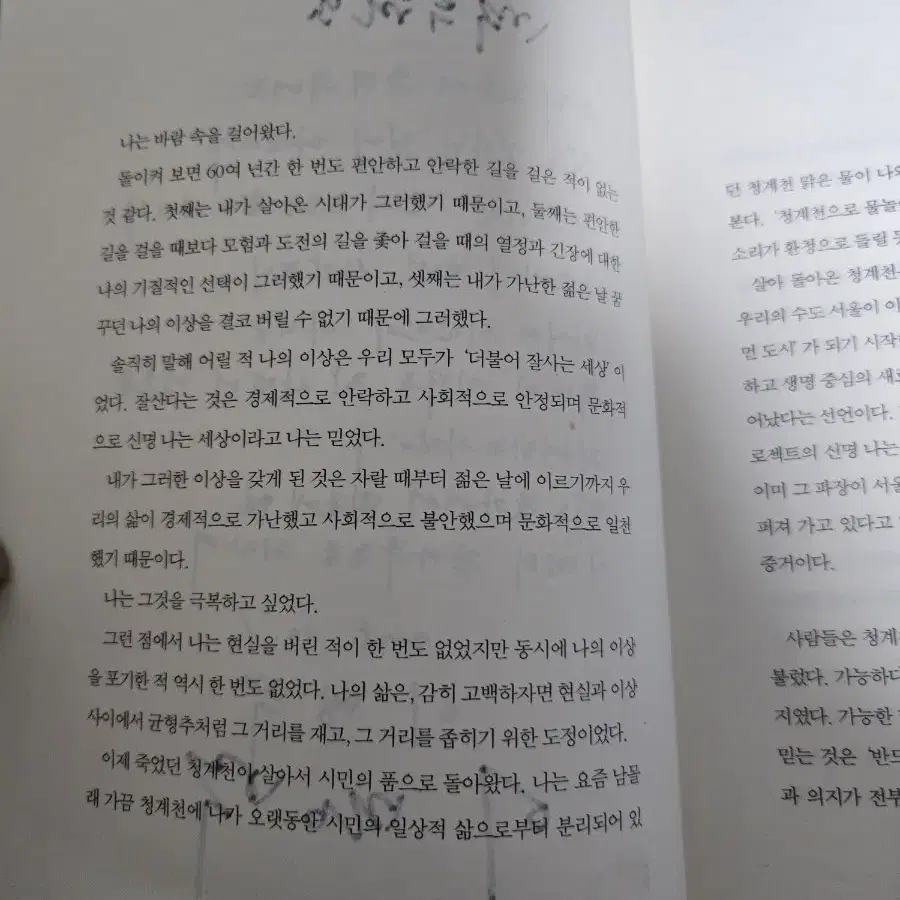 나는 바람 속을 걸어왔다.
돌이켜 보면 60여 년간 한 번도 편안하고 안락한 길을 걸은 적이 없는
것 같다. 첫째는 내가 살아온 시대가 그러했기 때문이고, 둘째는 편안한
길을 걸을 때보다 모험과 도전의 길을 좇아 걸을 때의 열정과 긴장에 대한
나의 기질적인 선택이 그러했기 때문이고, 셋째는 내가 가난한 젊은 날 꿈
꾸던 나의 이상을 결코 버릴 수 없기 때문에 그러했다.
솔직히 말해 어릴 적 나의 이상은 우리 모두가 '더불어 잘사는 세상'이
었다. 잘산다는 것은 경제적으로 안락하고 사회적으로 안정되며 문화적
으로 신명 나는 세상이라고 나는 믿었다.
내가 그러한 이상을 갖게 된 것은 자랄 때부터 젊은 날에 이르기까지 우
리의 삶이 경제적으로 가난했고 사회적으로 불안했으며 문화적으로 일천
했기 때문이다.
나는 그것을 극복하고 싶었다.
그런 점에서 나는 현실을 버린 적이 한 번도 없었지만 동시에 나의 이상
을 포기한 적 역시 한 번도 없었다. 나의 삶은, 감히 고백하자면 현실과 이상
사이에서 균형추처럼 그 거리를 재고, 그 거리를 좁히기 위한 도정이었다.
이제 죽었던 청계천이 살아서 시민의 품으로 돌아왔다. 나는 요즘 남몰
래 가끔 청계천에 나가 오랫동안 시민의 일상적 삶으로부터 분리되어 있
던 청계천 맑은 물이 나와
본다. '청계천으로 물놀
소리가 환청으로 들릴 듯
살아 돌아온 청계천은
우리의 수도 서울이 이
면 도시'가 되기 시작
하고 생명 중심의 새로
어났다는 선언이다.
로젝트의 신명 나는
이미 그 파장이 서울
퍼져 가고 있다고
증거이다.
사람들은 청계천
불렀다. 가능하다
지였다. 가능한
믿는 것은 '반드
과 의지가 전부